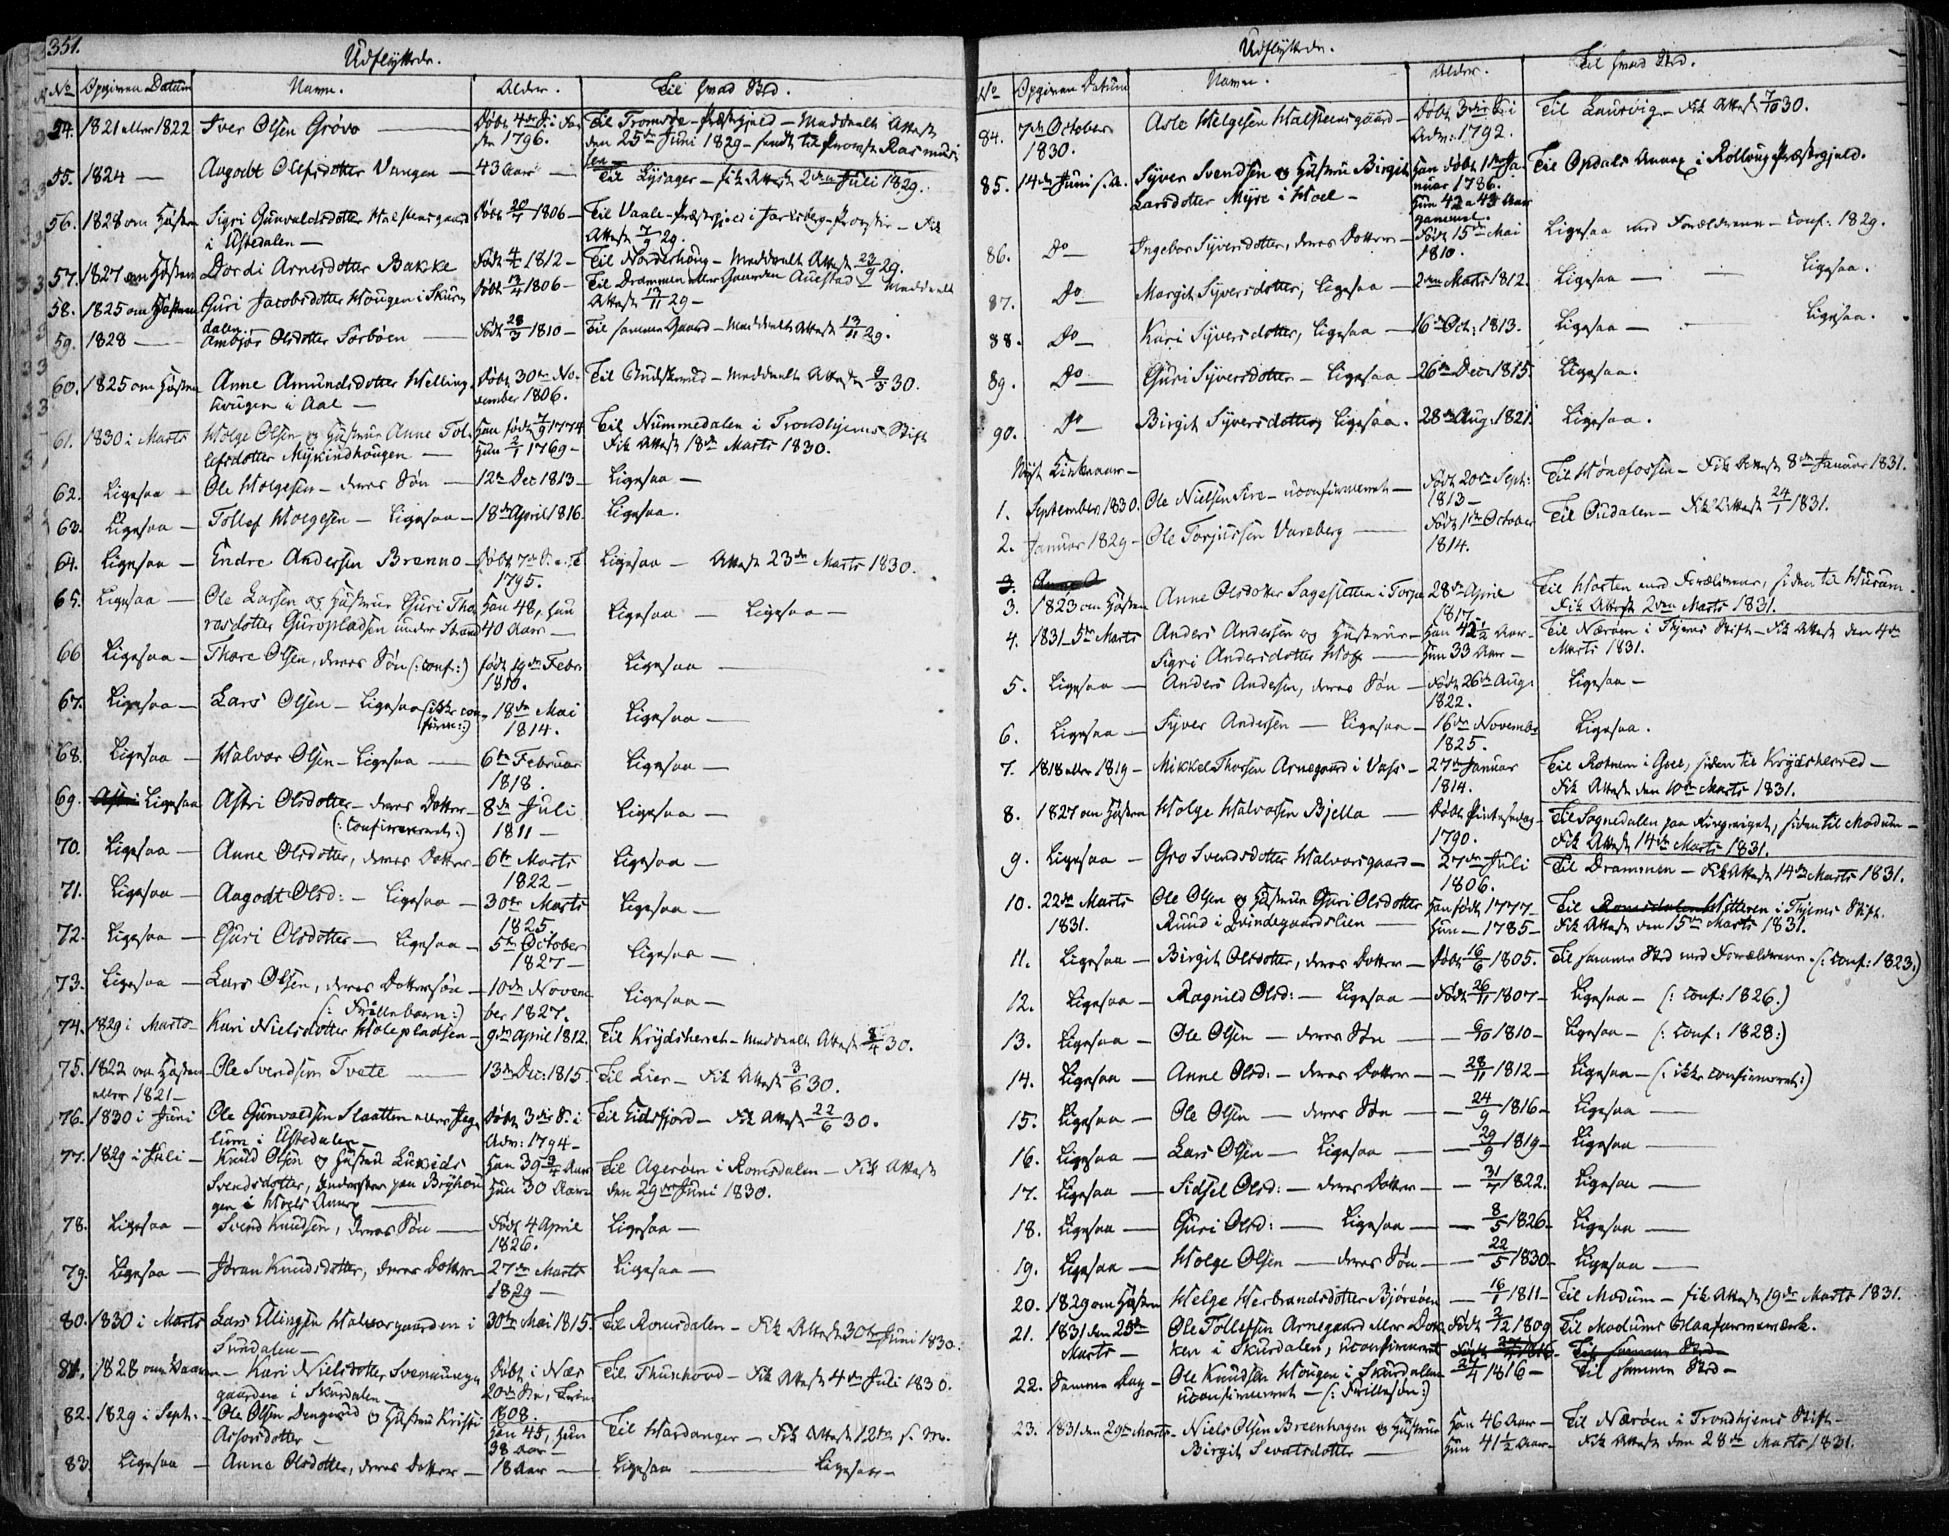 351.
Udflyttede.
No Opgiven Datum Navn. Alder. Til hvad Sted.
54. 1821 eller 1822 Iver Olsen Grøvo — Døbt 4de S. i Fa- Til Tromsøe Præstegjeld — Meddeelt Attest
sten 1796. den 25de Juni 1829 — sendt til Provst Rasmus-
sen —
55. 1824 — Aagodt Olefsdotter Vangen — 43 Aar — Til Lysager — fik Attest 2den Juli 1829.
56. 1828 om Høsten Sigri Gunvaldsdotter Halstensgaard Døbt 20/1 1806 — Til Vaale Præstegjeld i Jarlsberg Provstie — Fik
i Ustedalen — Attest 7/9 29.
57. 1827 om Høsten Dordi Arnesdotter Bakke Født 4/4 1812 — Til Norderhoug — Meddeelt Attest 23/9 29.
58. 1825 om Høsten Guri Jacobsdotter Hougen i Skur- Døbt 13/4 1806 — Til Drammen eller Gaarden Austad — Meddeelt
dalen Attest 13/11 29 —
59. 1828 — Ambjør Olsdotter Sørbøen — Født 28/3 1810 — Til samme Gaard — Meddeelt Attest 13/11 29.
60. 1825 om Høsten Anne Amundsdotter Helling- Døbt 30te No- Til Budskerud — Meddeelt Attest 9/3 30.
hougen i Aal — vember 1806.
61. 1830 i Marts Holge Olsen og Hustrue Anne Tol- Han født 7/9 1774 Til Nummedalen i Trondhjems Stift
lefsdotter Myrindhougen — Hun 2/1 1769 — Fik Attest 18de Marts 1830.
62. Ligesaa — Ole Holgesen — deres Søn — 12te Dec 1813 — Ligesaa —
63. Ligesaa — Tollef Holgesen — Ligesaa — 18de April 1816. Ligesaa.
64. Ligesaa — Endre Andersen Brenno — Døbt 7de S. e. T. Ligesaa — Attest 23de Marts 1830.
1795.
65. Ligesaa — Ole Larsen og Hustrue Guri Tho- Han 48, Hun Ligesaa — Ligesaa —
rasdotter Guropladsen under Strand 40 Aar —
66 Ligesaa — Thore Olsen, deres Søn (: conf:) født 19de Febr: Ligesaa —
1810.
67. Ligesaa — Lars Olsen — Ligesaa (: ikke con- 18de Mai Ligesaa —
firm:) 1814.
68. Ligesaa — Halvor Olsen — Ligesaa — 6te Februar Ligesaa —
1818.
69. Ligesaa Astri Olsdotter — deres Dotter — 8de Juli Ligesaa —
(: confirmeret:) 1811 —
70. Ligesaa — Anne Olsdotter, deres Dotter — 6te Marts Ligesaa —
1822 —
71. Ligesaa — Aagodt Olsd: — Ligesaa — 30te Marts Ligesaa —
1825.
72. Ligesaa — Guri Olsdotter — Ligesaa — 5te October Ligesaa —
1827 —
73. Ligesaa — Lars Olsen, deres Dottersøn — 10de Novem- Ligesaa —
(: Frillebarn:) ber 1827.
74. 1829 i Marts — Kari Nielsdotter Holepladsen — 9de April 1812. Til Krydsherret — Meddeelt Attest 8/4 30.
75. 1822 om Høsten — Ole Svendsen Tvete — 13de Dec: 1815. Til Lier — Fik Attest 3/6 30.
eller 1821 —
76. 1830 i Juni Ole Gunvaldsen Slaatten eller Jeg- Døbt 3die S. i Til Eidsfjord — Fik Attest 22/6 30.
lum i Ustedalen — Adv: 1794 —
77. 1829 i Juli — Knud Olsen og Hustrue Luxids Han 39 3/4 Aar Til Agerøen i Romsdalen — Fik Attest
Svendsdotter, Inderster paa Bryhou- Hun 30 Aar — den 29de Juni 1830.
gen i Hools Annex —
78. Ligesaa — Svend Knudsen, deres Søn — Født 4 April Ligesaa —
1826.
79. Ligesaa — Jøran Knudsdotter, deres Dotter — 27de Marts Ligesaa —
1829 —
80. 1830 i Marts Lars Ellingsen Halvorgaarden i 30te Mai 1815. Til Romsdalen — Fik Attest 30te Juni 1830.
Sundalen —
81. 1828 om Vaaren — Kari Nielsdotter Svenkeruug- Døbt i Nær Til Thunhovd — Fik Attest 4de Juli 1830.
gaardene i Skurdalen —
1808.
82. 1829 i Sept: — Ole Olsen Dengerud og Hustrue Kristi Han 45, Hun Til Hardanger — Fik Attest 12te s. M.
Asforsdotter — 38 Aar —
83. Ligesaa — Anne Olsdotter, deres Dotter — 18 Aar — Ligesaa — Ligesaa —
Udflyttede.
No Opgiven Datum Navn. Alder. Til hvad Sted.
84. 7de October Asle Helgesen Halsteensgaard — Døbt 3die S. i Til Laurvig — Fik Attest 7/10 30.
1830. Adv: 1792.
85. 14de Juni s. A. Syver Svendsen og Hustrue Birgit Han født 1ste Ja- Til Opdals Annex i Rollaug Præstegjeld.
Larsdotter Myre i Hoel — nuar 1786.
Hun 42 a 43 Aar
gammel.
86. Do — Ingebor Syversdotter, deres Dotter — Født 15de Mai Ligesaa med Forældrene — Conf: 1829.
1810.
87. Do — Margit Syversdotter, Ligesaa — 2den Marts 1812. Ligesaa — Ligesaa.
88. Do — Kari Syversdotter, Ligesaa — 16de Oct: 1813. Ligesaa — Ligesaa.
89. Do — Guri Syversdotter — Ligesaa — 26de Dec: 1815. Ligesaa.
90. Do — Birgit Syversdotter, Ligesaa. 28de Aug: 1821. Ligesaa.
Nyt Kirkeaar —
1. September 1830. Ole Nielsen Fire — uconfirmeret — Født 20de Sept: Til Hønefossen — Fik Attest 8de Januar 1831.
1813 —
2. Januar 1829 — Ole Torjussen Vareberg — Født 1ste October Til Oudalen — Fik Attest 24/1 1831.
1814.
3.
3. 1823 om Høsten Anne Olsdotter Sagesletten i Torpe 28de April Til Horten med Forældrene, siden til Hurum.
1817. Fik Attest 2den Marts 1831.
4. 1831 5te Marts Anders Andersen og Hustrue — Han 42 1/2 Aar — Til Nærøen i Thjems Stift — Fik Attest den 4de
Sigri Andersdotter Hoff — Hun 33 Aar — Marts 1831.
5. Ligesaa — Anders Andersen, deres Søn — Født 26de Aug: Ligesaa —
1822.
6. Ligesaa — Syver Andersen — Ligesaa — 16de November Ligesaa.
1825.
7. 1818 eller 1819 — Mikkel Thorsen Arnegaard i Vats — 27de Januar Til Rotnem i Goel, siden til Krydsherred —
1814. Fik Attest den 10de Marts 1831.
8. 1827 om Høsten Holge Halvorsen Bjella — Døbt Pintsedag — Til Sognedalen paa Ringeriget, siden til Modum —
1790. Fik Attest 14de Marts 1831.
9. Ligesaa — Gro Svendsdotter Halvorsgaard — 27de Juli Til Drammen — Fik Attest 14de Marts 1831.
1806.
10. 22de Marts Ole Olsen og Hustrue Guri Olsdotter Han født 1777 — Til Hitteren i Thjems Stift.
1831. Ruud i Qvindegaardslien — Hun — 1785 — Fik Attest den 15de Marts 1831.
11. Ligesaa — Birgit Olsdotter, deres Dotter — Døbt 16/6 1805. Til samme Sted med Forældrene. (: Conf: 1823.)
12. Ligesaa — Ragnild Olsd: — Ligesaa — Født 26/11 1807 — Ligesaa — (: Conf: 1826.)
13. Ligesaa — Ole Olsen — deres Søn — 6/10 1810 — Ligesaa — (: Conf: 1828:)
14. Ligesaa — Anne Olsd: — deres Dotter — 28/11 1812 — Ligesaa — (: ikke confirmeret:)
15. Ligesaa — Ole Olsen — deres Søn — 24/9 1816 — Ligesaa —
16. Ligesaa — Lars Olsen — Ligesaa — 29/9 1819 — Ligesaa —
17. Ligesaa — Sidsel Olsd: — deres Dotter — 1822. Ligesaa —
18. Ligesaa — Guri Olsd: — Ligesaa — 8/5 1826 — Ligesaa —
19. Ligesaa — Holge Olsen — deres Søn — 22/5 1830 — Ligesaa —
20. 1829 om Høsten Helge Herbrandsdotter Bjørøen — 16/1 1811 — Til Modum — fik Attest 19de Marts 1831.
21. 1831 den 25de Ole Tollefsen Arnegaard eller Dok- Født 2/12 1809 Til Modums Blaafarveværk.
Marts — ken i Skurdalen, uconfirmeret Til samme Sted
22. Samme Dag — Ole Knudsen Hougen i Skurdalen 27/4 1816 — Til samme Sted —
uconfirmeret — (: Frillesøn:)
23. 1831 den 29de Marts — Niels Olsen Breenhagen og Hustrue Han 46 Aar — Til Nærøen i Trondhjems Stift —
Birgit Sevatsdotter — Hun 41 1/2 Aar — Fik Attest den 28de Marts 1831.